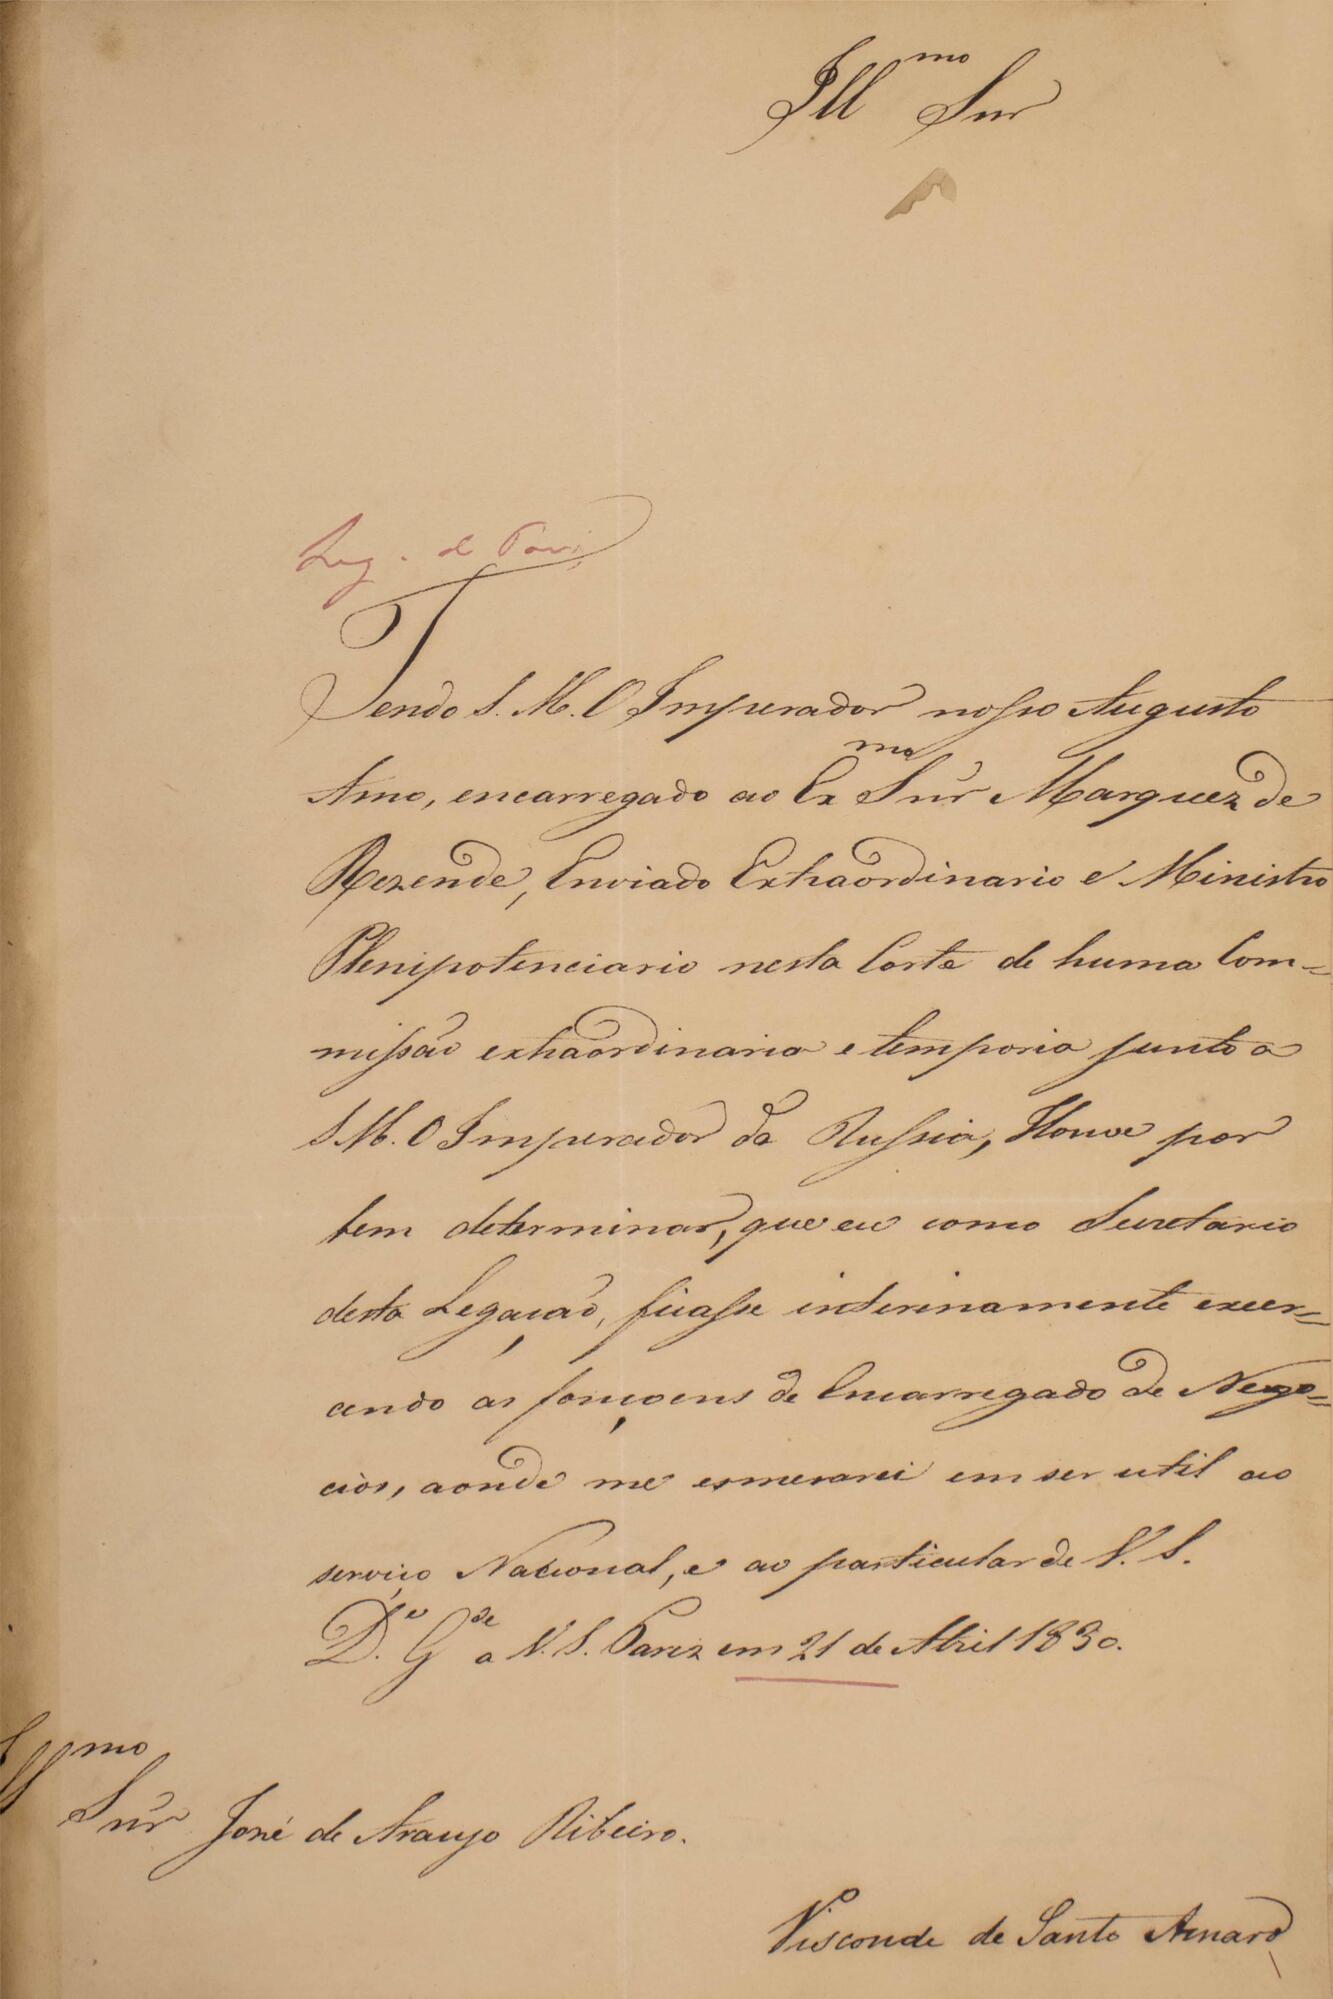 Ill.mo Snr
Leg. de Paris
Tendo S. M. O Imperador nosso Augusto
Amo, encarregado ao Ex.mo Snr Marquez de
Rezende, Enviado Extraordinario e Ministro
Plenipotenciario nesta Corte de huma Com=
missão extraordinaria e temporia junto a
S M. O Imperador da Russia, Houve por
bem determinar, que eu como Secretario
desta Legação, ficasse interinamente exer=
cendo as fonçoens de Encarregado de Nego=
cios, aonde me esmerarei em ser util ao
serviço Nacional, e ao particular de V. S.
D.s G.de a V. S. Pariz em 21 de Abril 1830.
Ill.mo
Snr José de Araujo Ribeiro.
Visconde de Santo Amaro